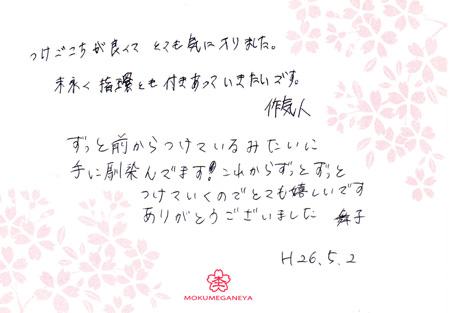 つけごこちが良くて とても気に入りました。
末永く指環とも付きあっていきたいです。
ずっと前からつけているみたいに
手に馴染んでます!これからずっとずっと
つけていくのでとても嬉しいです
ありがとうございました 舞子
H26.5.2
MOKUMEGANEYA